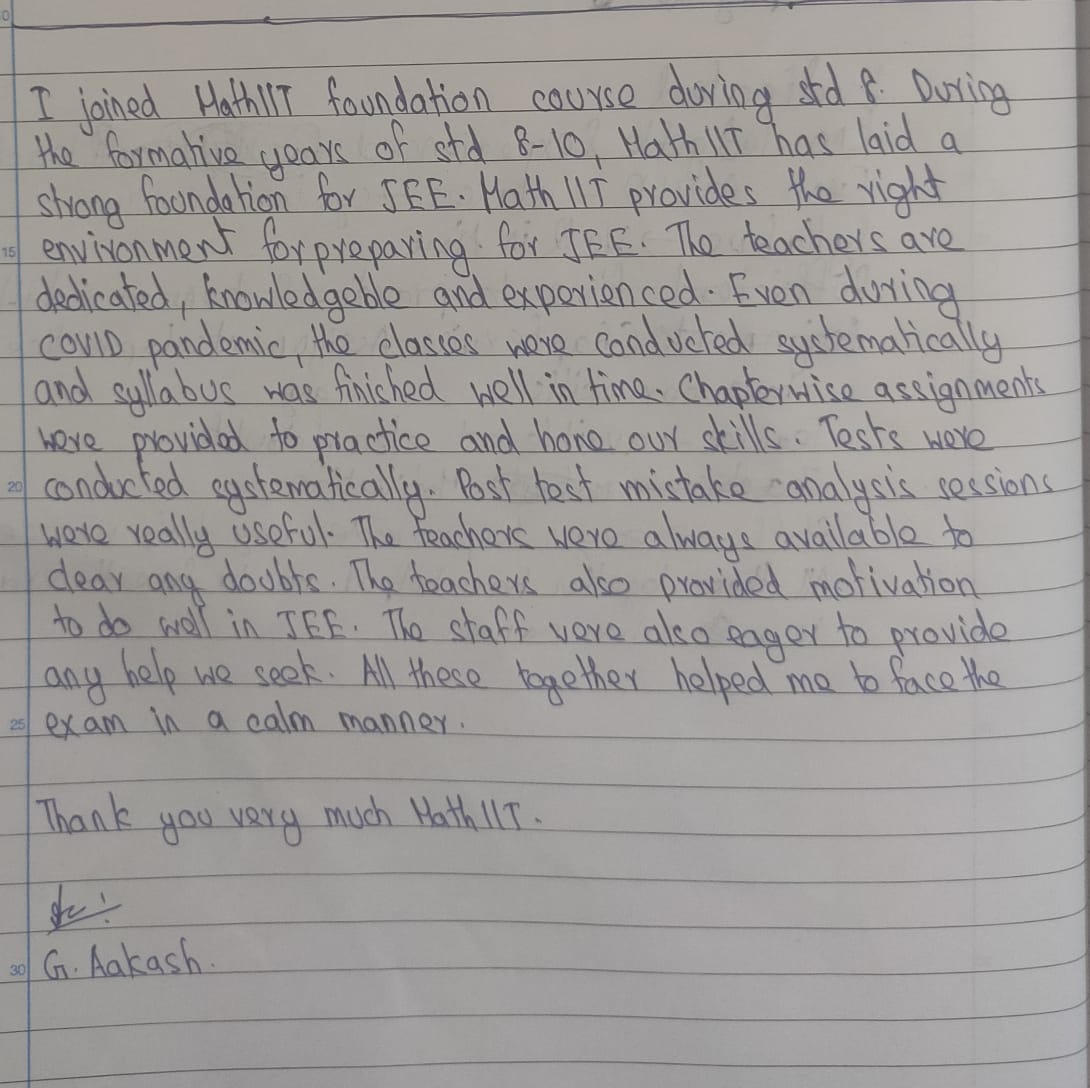 I joined MathIIT foundation course during std 8. During
the formative years of std 8-10, MathIIT has laid a
strong foundation for JEE. MathIIT provides the right
15 environment for preparing for JEE. The teachers are
dedicated, knowledgeble and experienced. Even during
COVID pandemic, the classes were conducted systematically
and syllabus was finished well in time. Chapterwise assignments
were provided to practice and hone our skills. Tests were
20 conducted systematically. Post test mistake analysis sessions
were really useful. The teachers were always available to
clear any doubts. The teachers also provided motivation
to do well in JEE. The staff were also eager to provide
any help we seek. All these together helped me to face the
25 exam in a calm manner.
Thank you very much MathIIT.
30 G. Aakash.